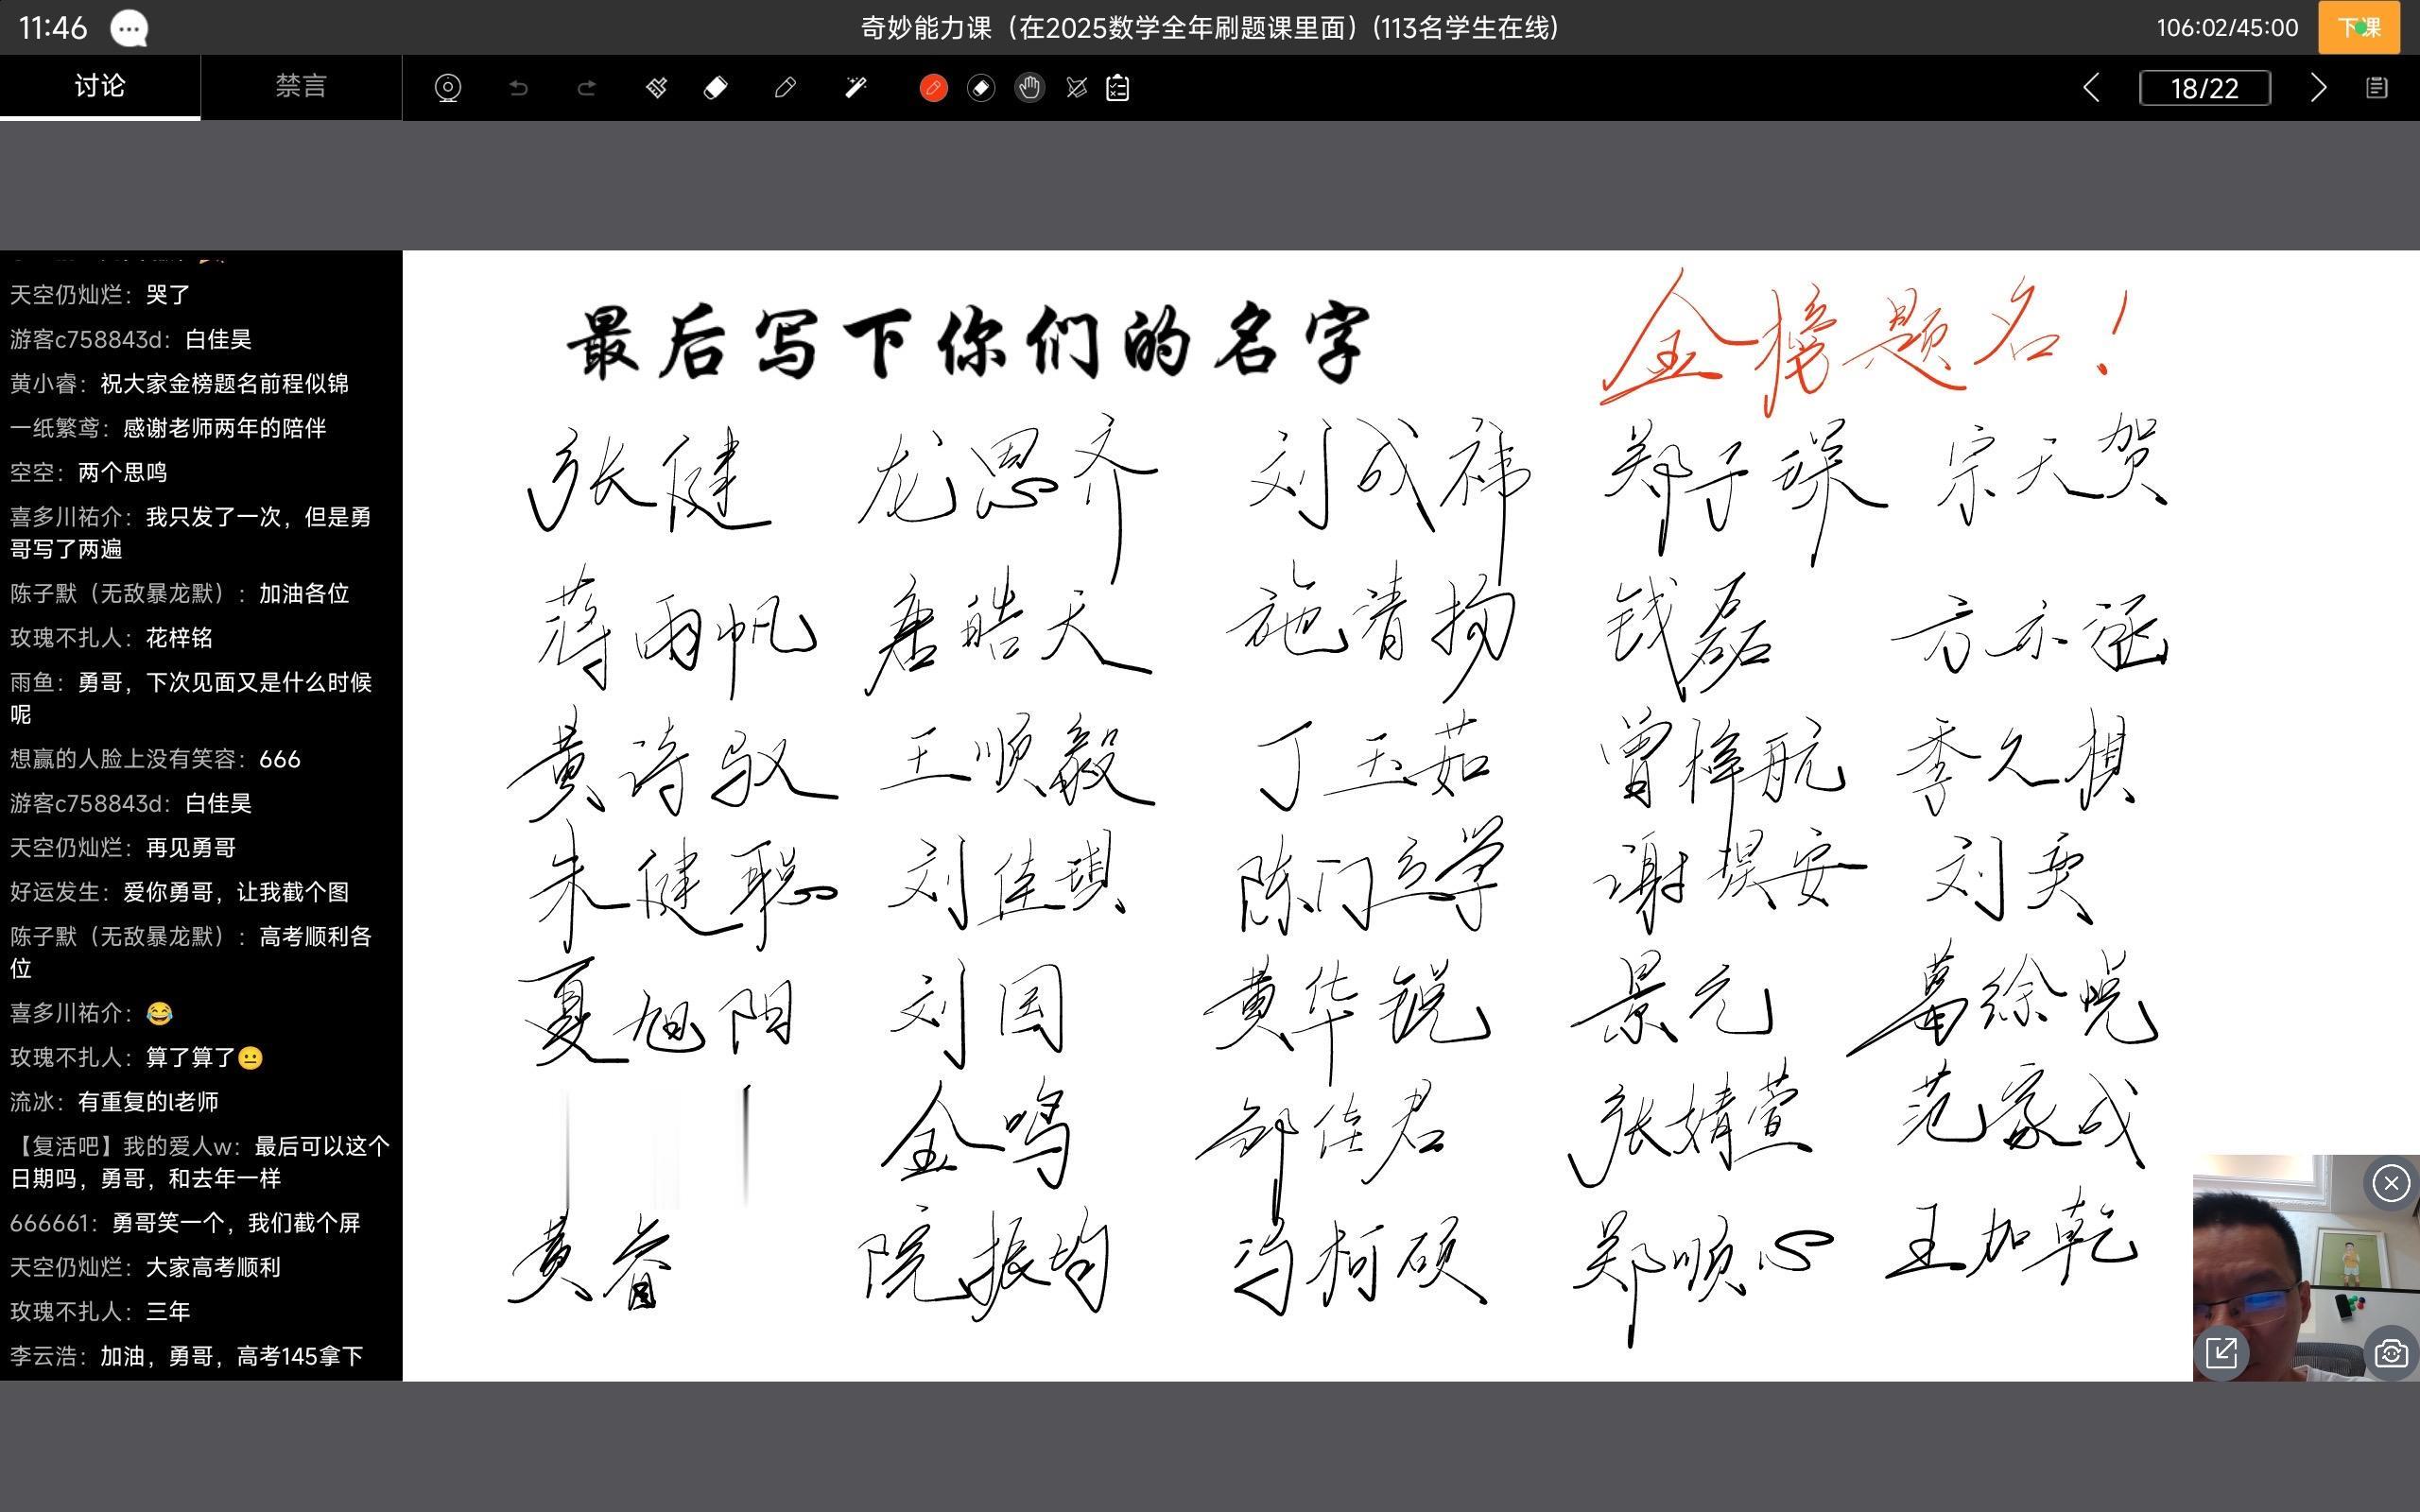 11:46
奇妙能力课（在2025数学全年刷题课里面）(113名学生在线)
106:02/45:00
下课
讨论
禁言
18/22
天空仍灿烂：哭了
游客c758843d：白佳昊
黄小睿：祝大家金榜题名前程似锦
一纸繁鸢：感谢老师两年的陪伴
空空：两个思鸣
喜多川祐介：我只发了一次，但是勇
哥写了两遍
陈子默（无敌暴龙默）：加油各位
玫瑰不扎人：花梓铭
雨鱼：勇哥，下次见面又是什么时候
呢
想赢的人脸上没有笑容：666
游客c758843d：白佳昊
天空仍灿烂：再见勇哥
好运发生：爱你勇哥，让我截个图
陈子默（无敌暴龙默）：高考顺利各
位
喜多川祐介：😂
玫瑰不扎人：算了算了😐
流冰：有重复的l老师
【复活吧】我的爱人w：最后可以这个
日期吗，勇哥，和去年一样
666661：勇哥笑一个，我们截个屏
天空仍灿烂：大家高考顺利
玫瑰不扎人：三年
李云浩：加油，勇哥，高考145拿下
最后写下你们的名字
金榜题名！
张健 龙思齐 刘成祎 郑子琛 宗天贺
蒋雨帆 唐皓天 施清扬 钱磊 方亦涵
黄诗驭 王顺毅 丁玉茹 曾梓航 季久棋
朱健聪 刘佳琪 陈门立学 谢昊安 刘奕
夏旭阳 刘国 黄华锐 景元 葛徐悦
金鸣 邹佳君 张婧萱 范家成
黄睿 阮振均 冯柯硕 郑顺心 王加乾